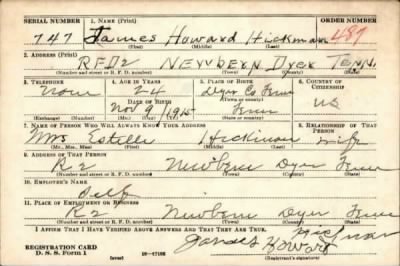 SERIAL NUMBER 1. NAME (Print) ORDER NUMBER
747 James Howard Hickman 487
(First) (Middle) (Last)
2. ADDRESS (Print)
RFD2 Newbern Dyer Tenn.
(Number and street or R. F. D. number) (Town) (County) (State)
3. TELEPHONE 4. AGE IN YEARS 5. PLACE OF BIRTH 6. COUNTRY OF CITIZENSHIP
None 24 Dyer Co Tenn
DATE OF BIRTH (Town or county) US
Nov 9 1915 Tenn
(Exchange) (Number) (Mo.) (Day) (Yr.) (State or country)
7. NAME OF PERSON WHO WILL ALWAYS KNOW YOUR ADDRESS 8. RELATIONSHIP OF THAT PERSON
Mrs Estelle Hickman wife
(Mr., Mrs., Miss) (First) (Middle) (Last)
9. ADDRESS OF THAT PERSON
R2 Newbern Dyer Tenn
(Number and street or R. F. D. number) (Town) (County) (State)
10. EMPLOYER'S NAME
Self
11. PLACE OF EMPLOYMENT OR BUSINESS
R2 Newbern Dyer Tenn
(Number and street or R. F. D. number) (Town) (County) (State)
I AFFIRM THAT I HAVE VERIFIED ABOVE ANSWERS AND THAT THEY ARE TRUE.
REGISTRATION CARD James Howard Hickman
D. S. S. Form 1 (over) (Registrant's signature)